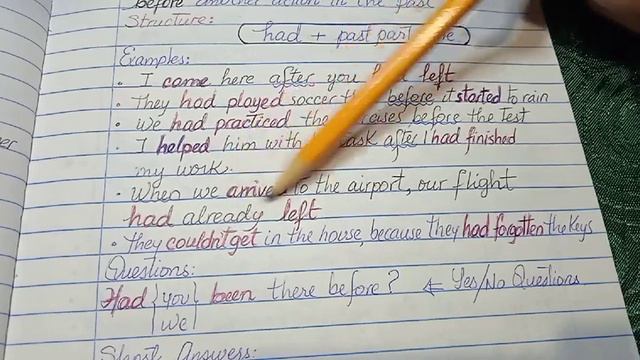 before another action in the past
Structure:
had + past
Examples:
• I came here after you left
• They had played soccer before it started to rain
• We had practiced the before the test
• I helped him with task after I had finished
my work.
• When we arrive to the airport, our flight
had already left
• they couldn't get in the house, because they had forgotten the keys
Questions:
Had {you} been there before? ← Yes/No Questions
we
Short Answers: